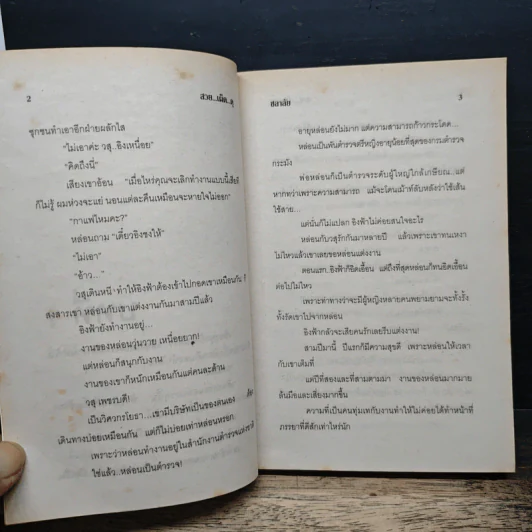 2
สวย...เผ็ด...ดุ
ซุกซนทำเอาอีกฝ่ายผลักไส
"ไม่เอาค่ะ วสุ..อิงเหนื่อย"
"คิดถึงนี่"
เสียงเขาอ้อน "เมื่อไหร่คุณจะเลิกทำงานแบบนี้เสียที
ก็ไม่รู้ ผมห่วงจะแย่ นอนแต่ละคืนเหมือนจะหายใจไม่ออก"
"กาแฟไหมคะ?"
หล่อนถาม "เดี๋ยวอิงชงให้"
"ไม่เอา"
"อ้าว..."
วสุเดินหนี ทำให้อิงฟ้าต้องเข้าไปกอดเขาเหมือนกัน
สงสารเขา หล่อนกับเขาแต่งงานกันมาสามปีแล้ว
อิงฟ้ายังทำงานอยู่...
งานของหล่อนวุ่นวาย เหนื่อยยาก!
แต่หล่อนก็สนุกกับงาน
งานของเขาก็หนักเหมือนกันแต่คนละด้าน
วสุ เพชรบดี!
เป็นวิศวกรโยธา...เขามีบริษัทเป็นของตนเอง
เดินทางบ่อยเหมือนกัน แต่ก็ไม่บ่อยเท่าหล่อนหรอก
เพราะว่าหล่อนทำงานอยู่ในสำนักงานตำรวจแห่งชาติ
ใช่แล้ว..หล่อนเป็นตำรวจ!
ชลาลัย
3
อายุหล่อนยังไม่มาก แต่ความสามารถก้าวกระโดด...
หล่อนเป็นพันตำรวจตรีหญิงอายุน้อยที่สุดของกรมตำรวจ
กระมัง
พ่อหล่อนก็เป็นตำรวจระดับผู้ใหญ่ใกล้เกษียณ...แต่
หากทว่าเพราะความสามารถ แม้จะโดนเม้าท์ลับหลังว่าใช้เส้น
ใช้สาย...
แต่นั่นก็ไม่แปลก อิงฟ้าไม่ค่อยสนใจอะไร
หล่อนกับวสุรักกันมาหลายปี แล้วเพราะเขาทนเหงา
ไม่ไหวแล้วเขาเลยขอหล่อนแต่งงาน
ตอนแรก..อิงฟ้าก็อิดเอื้อน แต่ถึงที่สุดหล่อนก็ทนอิดเอื้อน
ต่อไปไม่ไหว
เพราะท่าทางว่าจะมีผู้หญิงหลายคนพยายามจะทั้งรั้ง
ทั้งรัดเขาไปจากหล่อน!
อิงฟ้ากลัวจะเสียคนรักเลยรีบแต่งงาน!
สามปีมานี้ ปีแรกก็มีความสุขดี เพราะหล่อนให้เวลา
กับเขาเต็มที่
แต่ปีที่สองและที่สามตามมา งานของหล่อนมากมาย
ล้นมือและเสี่ยงมากขึ้น
ความที่เป็นคนทุ่มเทกับงานทำให้ไม่ค่อยได้ทำหน้าที่
ภรรยาที่ดีสักเท่าไหร่นัก